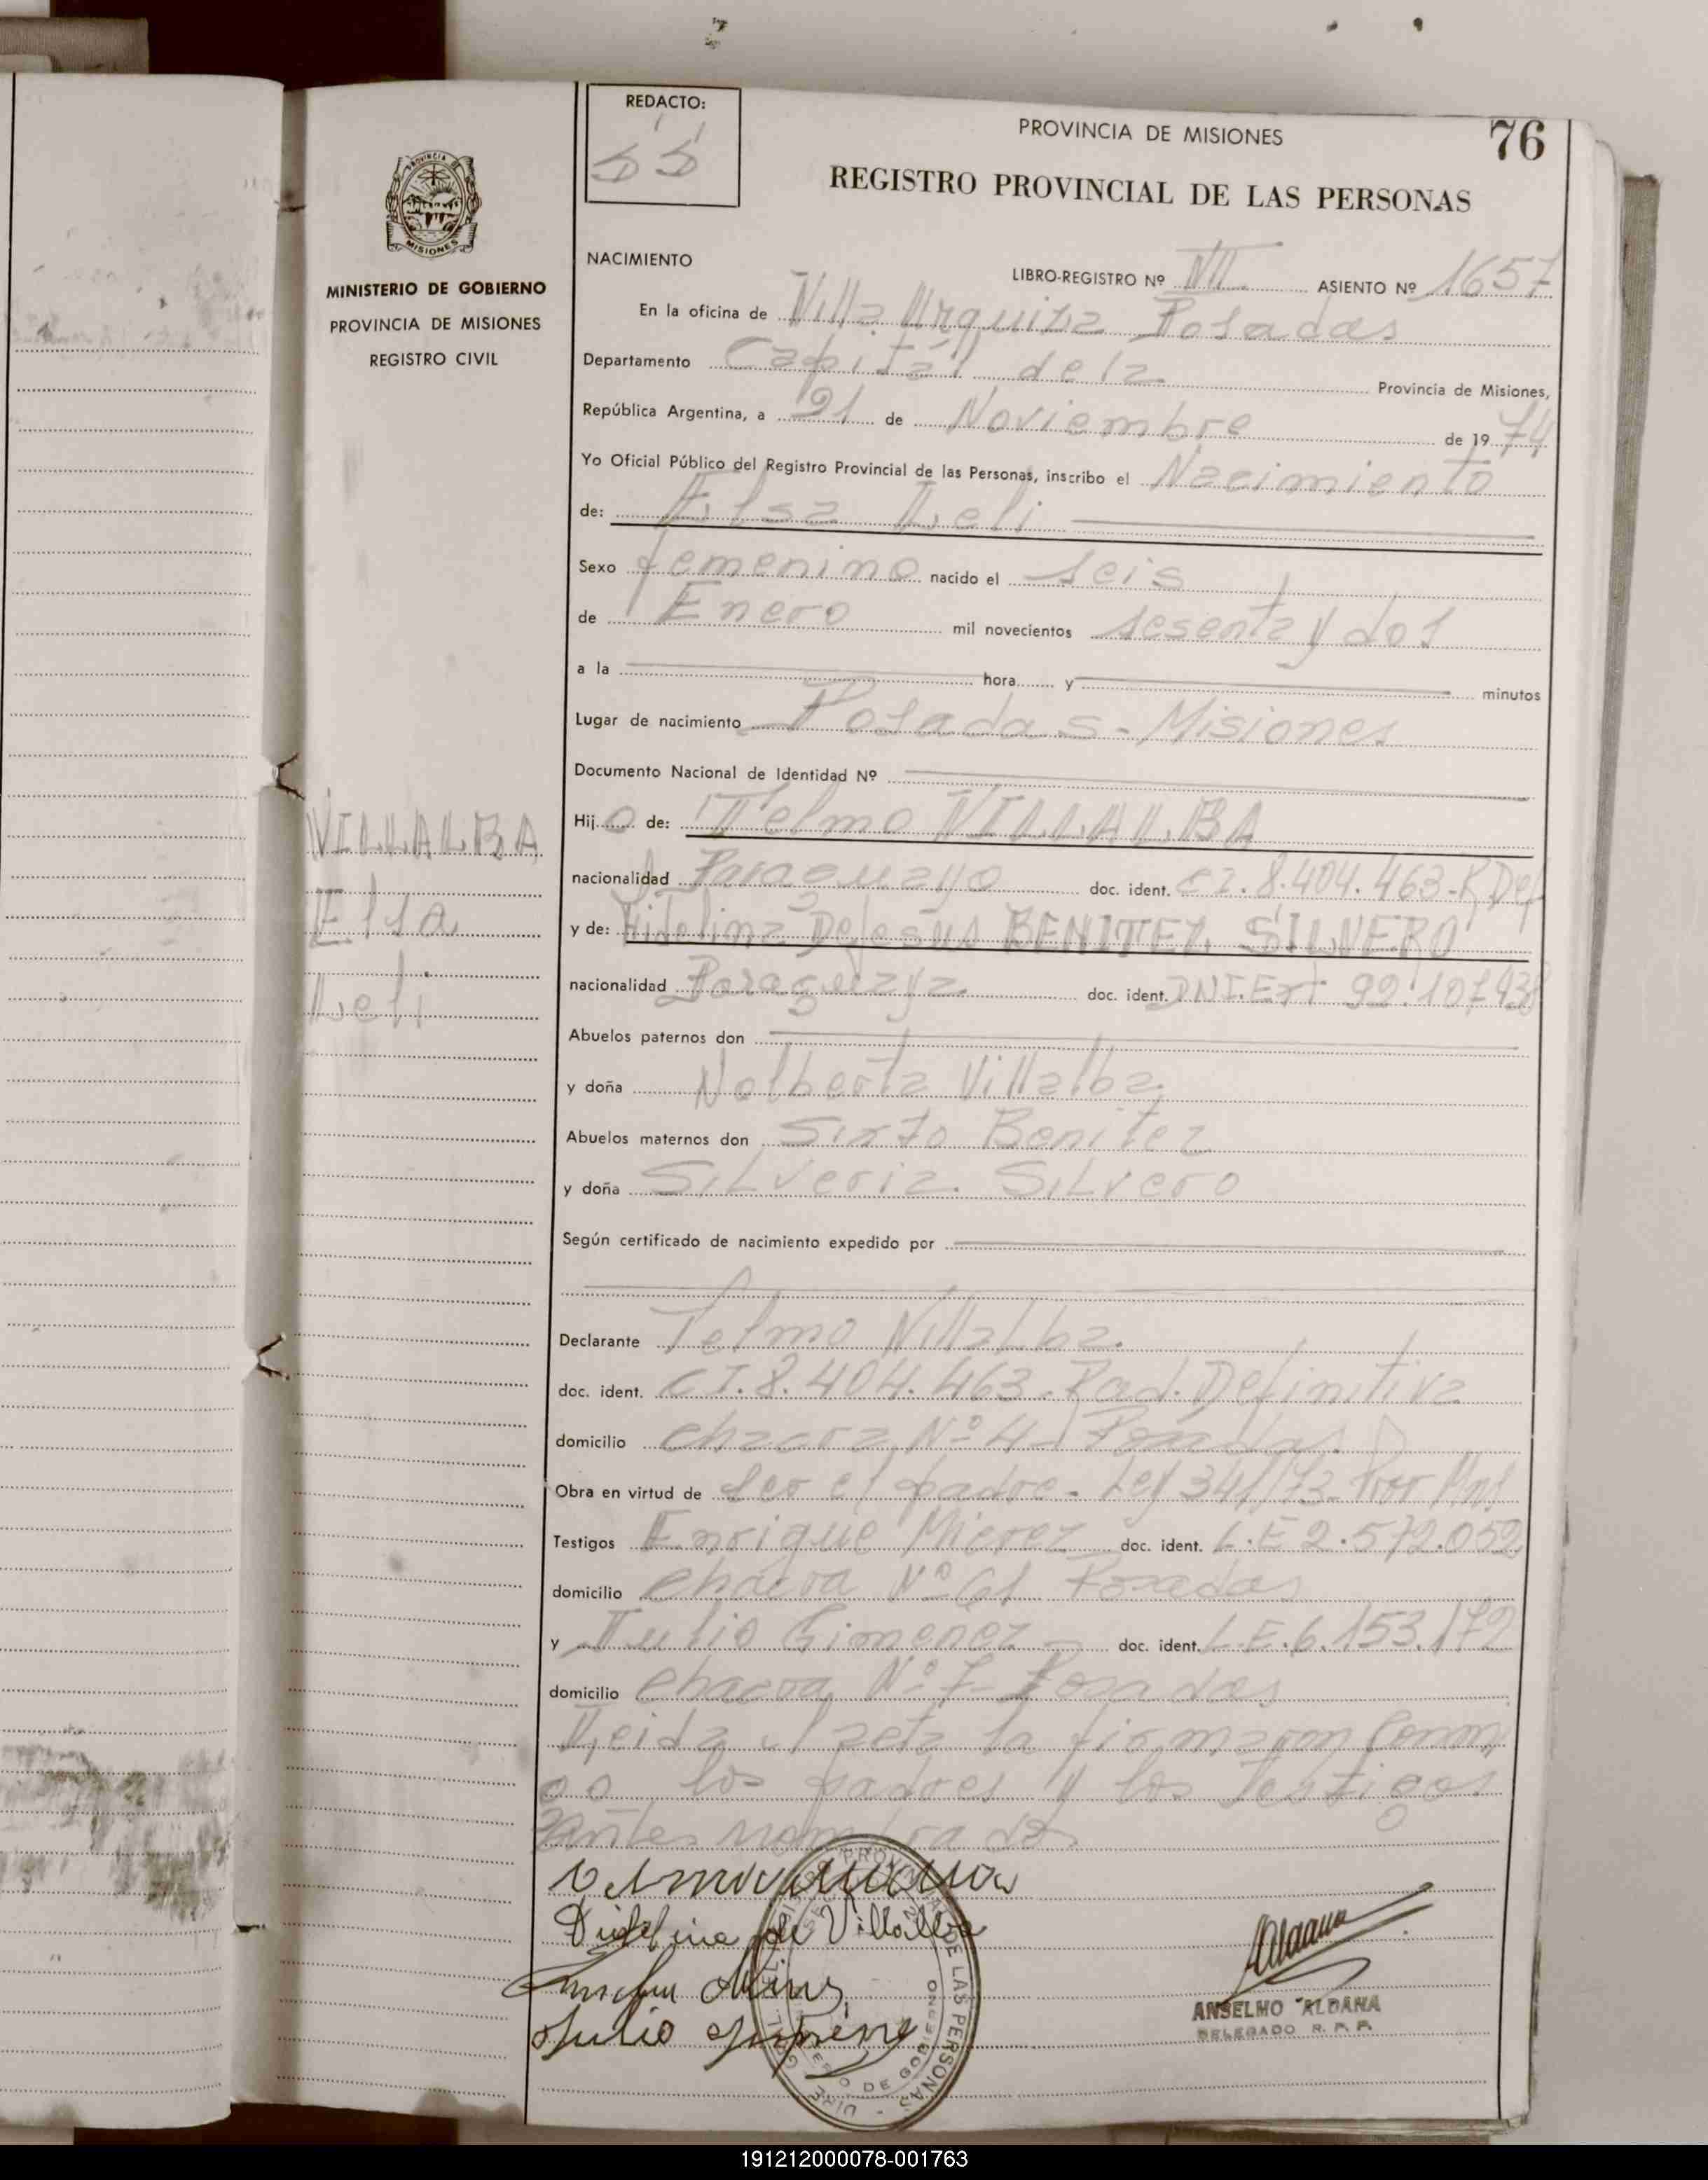 REDACTO:
PROVINCIA DE MISIONES
76
REGISTRO PROVINCIAL DE LAS PERSONAS
PROVINCIA DE
MISIONES
MINISTERIO DE GOBIERNO
PROVINCIA DE MISIONES
REGISTRO CIVIL
VILLALBA
Elsa
Leli
NACIMIENTO
LIBRO-REGISTRO Nº VII ASIENTO Nº 1657
En la oficina de Villa Urquiza Posadas
Departamento Capital de la Provincia de Misiones,
República Argentina, a 21 de Noviembre de 1974
Yo Oficial Público del Registro Provincial de las Personas, inscribo el Nacimiento
de: Elsa Leli
Sexo femenino nacido el seis
de Enero mil novecientos sesenta y dos
a la hora y minutos
Lugar de nacimiento Posadas - Misiones
Documento Nacional de Identidad Nº
Hijo de: Telmo VILLALBA
nacionalidad Paraguayo doc. ident. CI. 8.404.463-R Def
y de: Fidelina Dejesus BENITEZ SILVERO
nacionalidad Paraguaya doc. ident. DNI. Ext 92.107.438
Abuelos paternos don
y doña Nolberta Villalba
Abuelos maternos don Sixto Benitez
y doña Silveria Silvero
Según certificado de nacimiento expedido por
Declarante Telmo Villalba
doc. ident. CI. 8.404.463. Rad. Definitiva
domicilio chacra Nº 4 - Posadas.
Obra en virtud de ser el padre - Ley 341/73
Testigos Enrique Mierez doc. ident. L.E 2.572.052
domicilio chacra Nº 61 Posadas
y Julio Gimenez doc. ident. L.E. 6.153.172
domicilio chacra Nº 7 - Posadas
Leida el acta la firmaron
los padres y los testigos
antes nombrados
de Villalba
Julio
ANSELMO ALDANA
DELEGADO R. P. P.
DE LAS PERSONAS
DE GOBIERNO
191212000078-001763